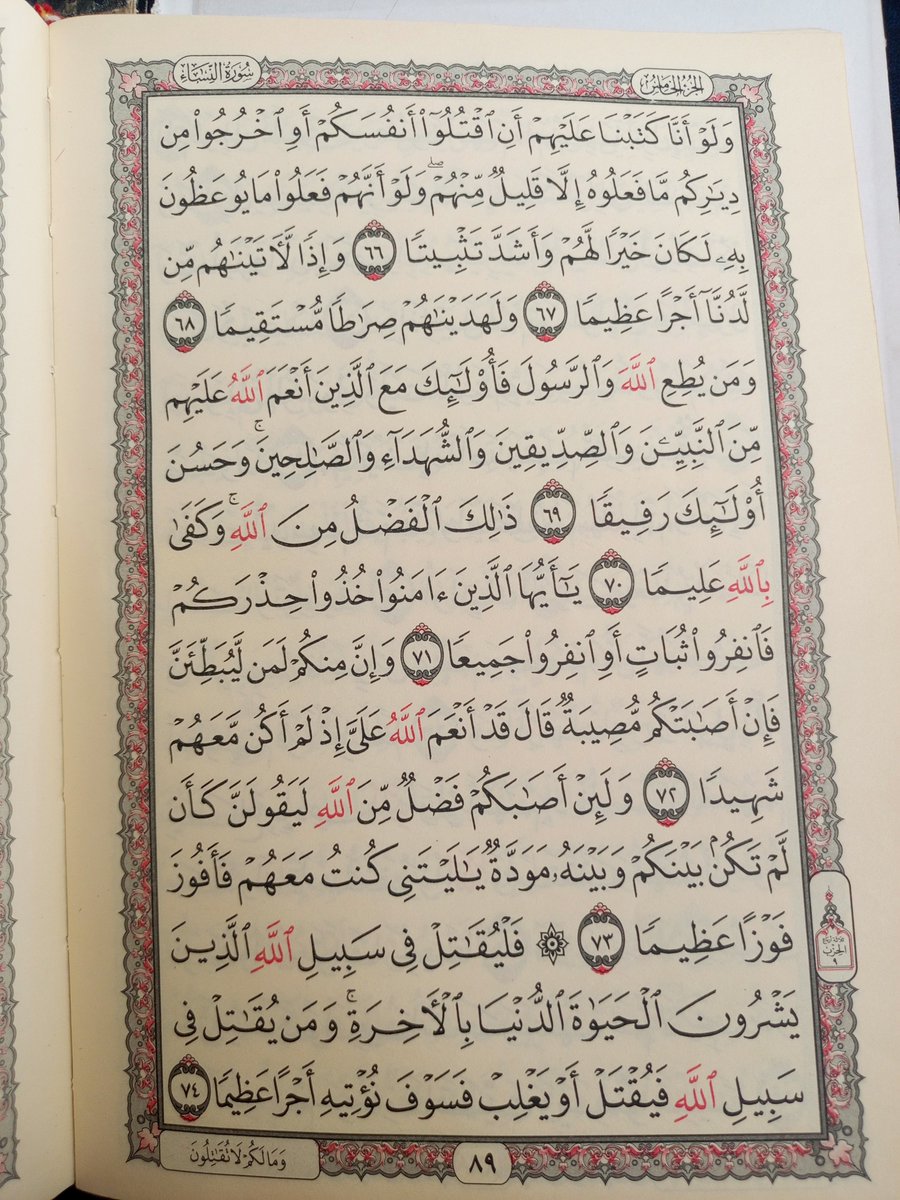 الجزء الخامس
سورة النساء
وَلَوْ أَنَّا كَتَبْنَا عَلَيْهِمْ أَنِ ٱقْتُلُوٓا۟ أَنفُسَكُمْ أَوِ ٱخْرُجُوا۟ مِن
دِيَـٰرِكُم مَّا فَعَلُوهُ إِلَّا قَلِيلٌ مِّنْهُمْ ۖ وَلَوْ أَنَّهُمْ فَعَلُوا۟ مَا يُوعَظُونَ
بِهِۦ لَكَانَ خَيْرًا لَّهُمْ وَأَشَدَّ تَثْبِيتًا ٦٦ وَإِذًا لَّـَٔاتَيْنَـٰهُم مِّن
لَّدُنَّآ أَجْرًا عَظِيمًا ٦٧ وَلَهَدَيْنَـٰهُمْ صِرَٰطًا مُّسْتَقِيمًا ٦٨
وَمَن يُطِعِ ٱللَّهَ وَٱلرَّسُولَ فَأُو۟لَـٰٓئِكَ مَعَ ٱلَّذِينَ أَنْعَمَ ٱللَّهُ عَلَيْهِم
مِّنَ ٱلنَّبِيِّـۧنَ وَٱلصِّدِّيقِينَ وَٱلشُّهَدَآءِ وَٱلصَّـٰلِحِينَ ۚ وَحَسُنَ
أُو۟لَـٰٓئِكَ رَفِيقًا ٦٩ ذَٰلِكَ ٱلْفَضْلُ مِنَ ٱللَّهِ ۚ وَكَفَىٰ
بِٱللَّهِ عَلِيمًا ٧٠ يَـٰٓأَيُّهَا ٱلَّذِينَ ءَامَنُوا۟ خُذُوا۟ حِذْرَكُمْ
فَٱنفِرُوا۟ ثُبَاتٍ أَوِ ٱنفِرُوا۟ جَمِيعًا ٧١ وَإِنَّ مِنكُمْ لَمَن لَّيُبَطِّئَنَّ
فَإِنْ أَصَـٰبَتْكُم مُّصِيبَةٌ قَالَ قَدْ أَنْعَمَ ٱللَّهُ عَلَىَّ إِذْ لَمْ أَكُن مَّعَهُمْ
شَهِيدًا ٧٢ وَلَئِنْ أَصَـٰبَكُمْ فَضْلٌ مِّنَ ٱللَّهِ لَيَقُولَنَّ كَأَن
لَّمْ تَكُنۢ بَيْنَكُمْ وَبَيْنَهُۥ مَوَدَّةٌ يَـٰلَيْتَنِى كُنتُ مَعَهُمْ فَأَفُوزَ
فَوْزًا عَظِيمًا ٧٣ ۞ فَلْيُقَـٰتِلْ فِى سَبِيلِ ٱللَّهِ ٱلَّذِينَ
يَشْرُونَ ٱلْحَيَوٰةَ ٱلدُّنْيَا بِٱلْـَٔاخِرَةِ ۚ وَمَن يُقَـٰتِلْ فِى
سَبِيلِ ٱللَّهِ فَيُقْتَلْ أَوْ يَغْلِبْ فَسَوْفَ نُؤْتِيهِ أَجْرًا عَظِيمًا ٧٤
الحزب
٩
٨٩
وَمَا لَكُمْ لَا تُقَـٰتِلُونَ